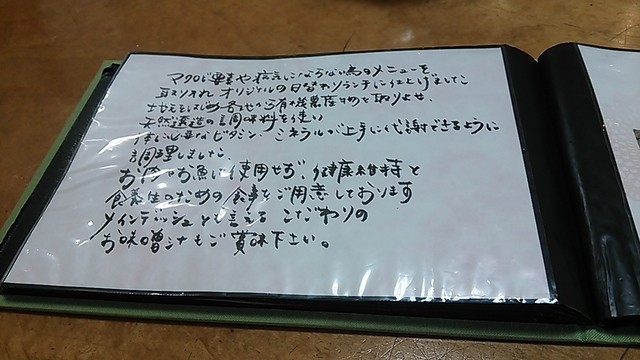 マクロビ や にならない のメニューを
取り入れ オリジナルの日替わりランチに仕上げました
地元をはじめ各地から有機農産物を取りよせ、
天然醸造の調味料を使い
体に必要なビタミン、ミネラルが上手に代謝できるように
調理しました。
お肉お魚は使用せず、健康維持と
食養生のための食事をご用意しております
メインディッシュとも言えるこだわりの
お味噌汁もご賞味下さい。